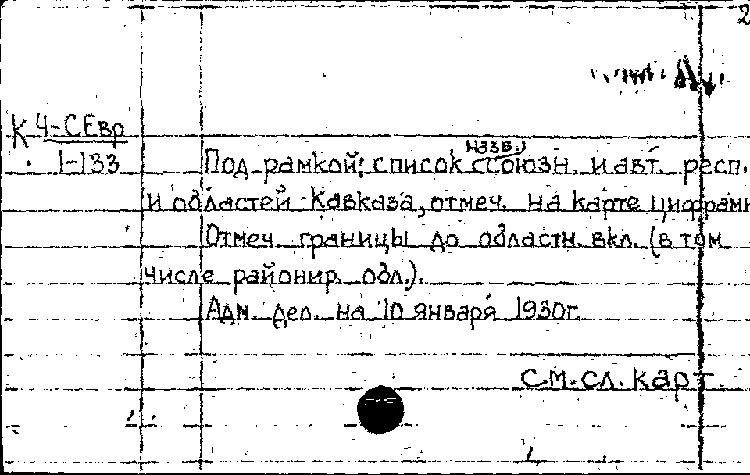 2
К 4-СЕвр
1-133
назв.)
Под рамкой: список (союзн. и авт. респ.
и областей Кавказа, отмеч. на карте цифрами
Отмеч. границы до области вкл. (в том
числе районир. обл.).
Адм. дел. на 10 января 1930г.
см. сл. карт.